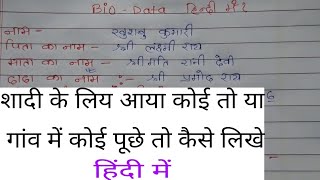 BIO-Data हिन्दी में?
नाम - खुशबु कुमारी
पिता का नाम - श्री लक्ष्मी राय
माता का नाम - श्रीमति रानी देवी
दादा का नाम :- श्री प्रमोद राय
शादी के लिय आया कोई तो या
गांव में कोई पूछे तो कैसे लिखे
हिंदी में